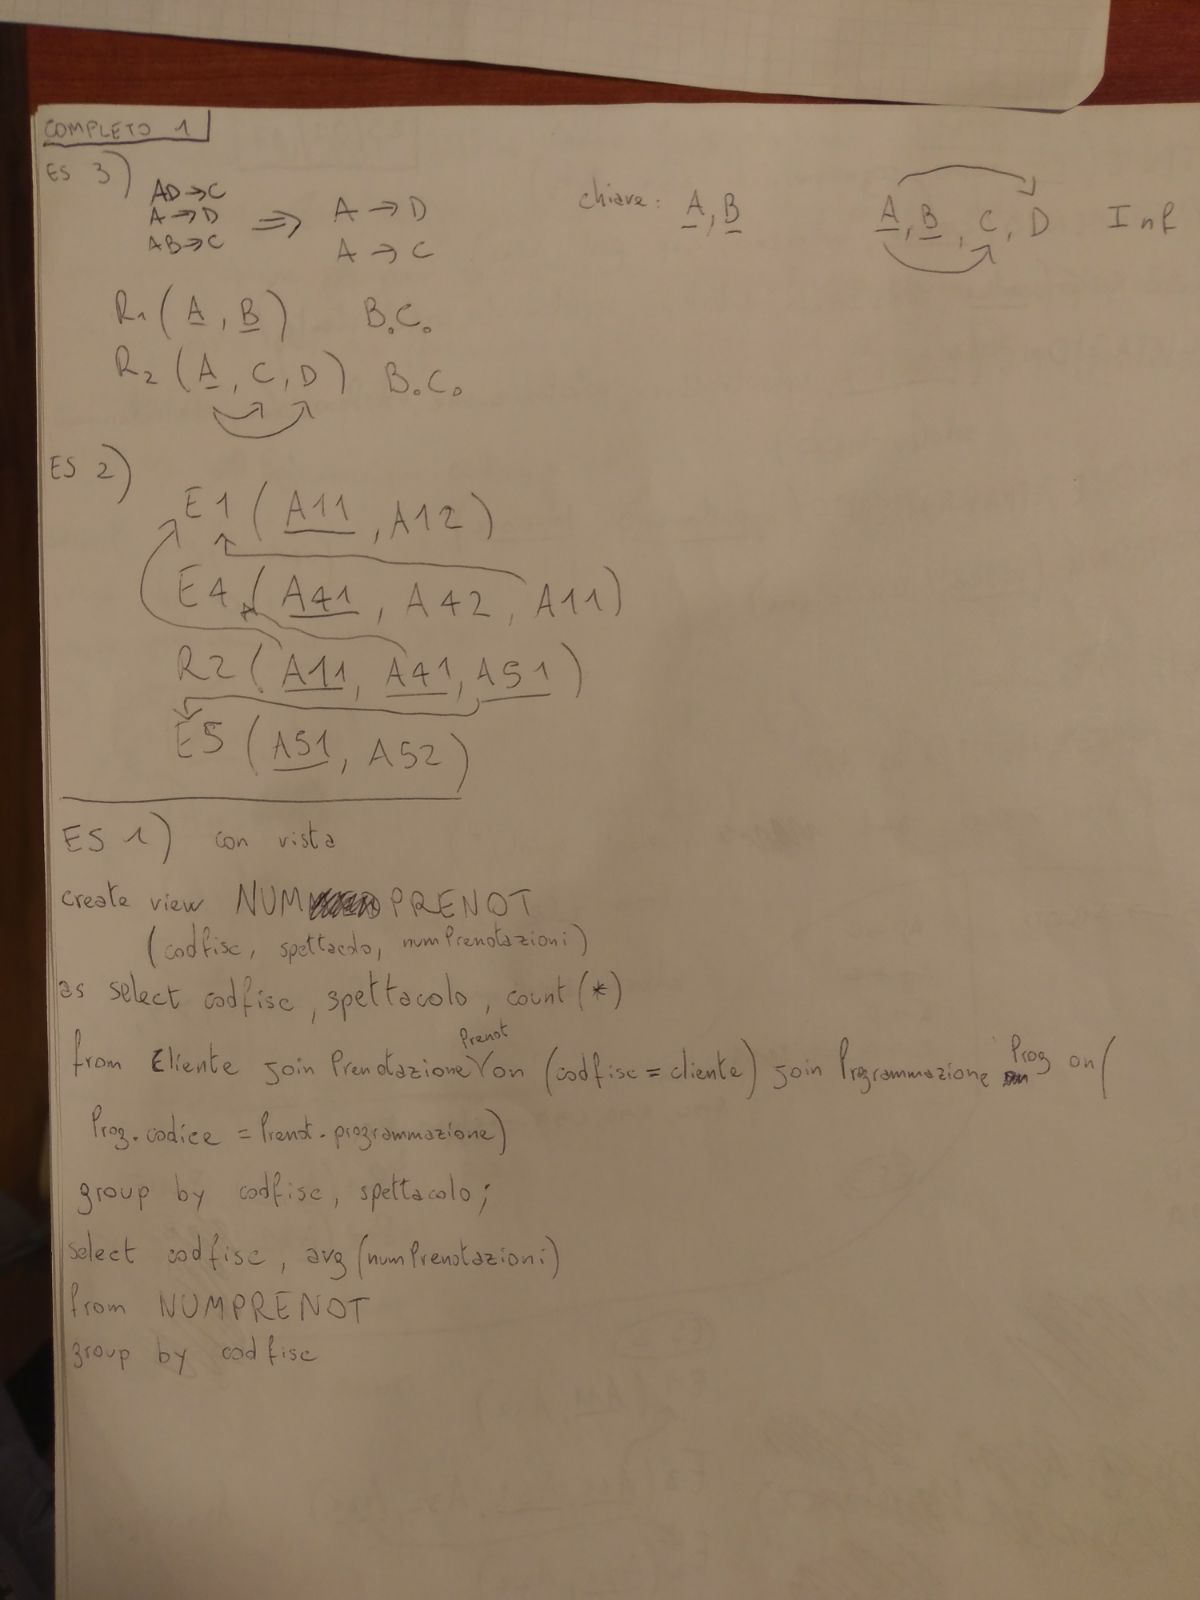 COMPLETO 1
ES 3)
AD→C
A→D
AB→C
⇒
A→D
A→C
chiave: A, B
A, B, C, D 1nf
R1 (A, B) B.C.
R2 (A, C, D) B.C.
ES 2)
E1 (A11, A12)
E4 (A41, A42, A11)
R2 (A11, A41, A51)
E5 (A51, A52)
ES 1) con vista
create view NUMPRENOT
(codfisc, spettacolo, numPrenotazioni)
as select codfisc, spettacolo, count(*)
from Cliente join Prenotazione Prenot on (codfisc = cliente) join Programmazione Prog on (
Prog.codice = Prenot.programmazione)
group by codfisc, spettacolo;
select codfisc, avg(numPrenotazioni)
from NUMPRENOT
group by codfisc